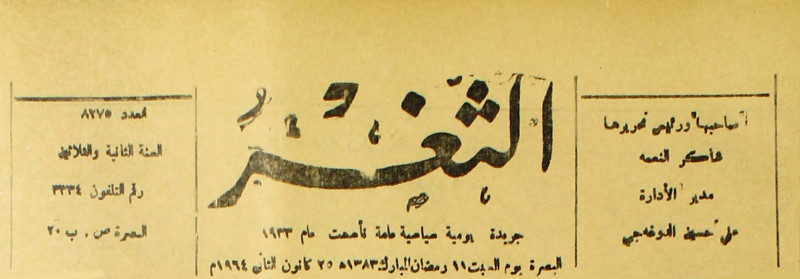 صاحبها ورئيس تحريرها
شاكر النعمه
مدير الأدارة
علي حسين
الثغر
جريدة يومية سياسية عامة تأسست عام ١٩٣٣
البصرة يوم السبت ١١ رمضان المبارك ١٣٨٣ﻫ ٢٥ كانون الثاني ١٩٦٤م
العدد ٨٢٧٥
السنة الثانية والثلاثين
رقم التلفون ٣٣٣٤
البصرة ص . ب ٢٠